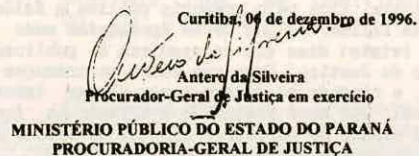 Curitiba, 06 de dezembro de 1996.
Antero da Silveira
Antero da Silveira
Procurador-Geral de Justiça em exercício
MINISTÉRIO PÚBLICO DO ESTADO DO PARANÁ
PROCURADORIA-GERAL DE JUSTIÇA